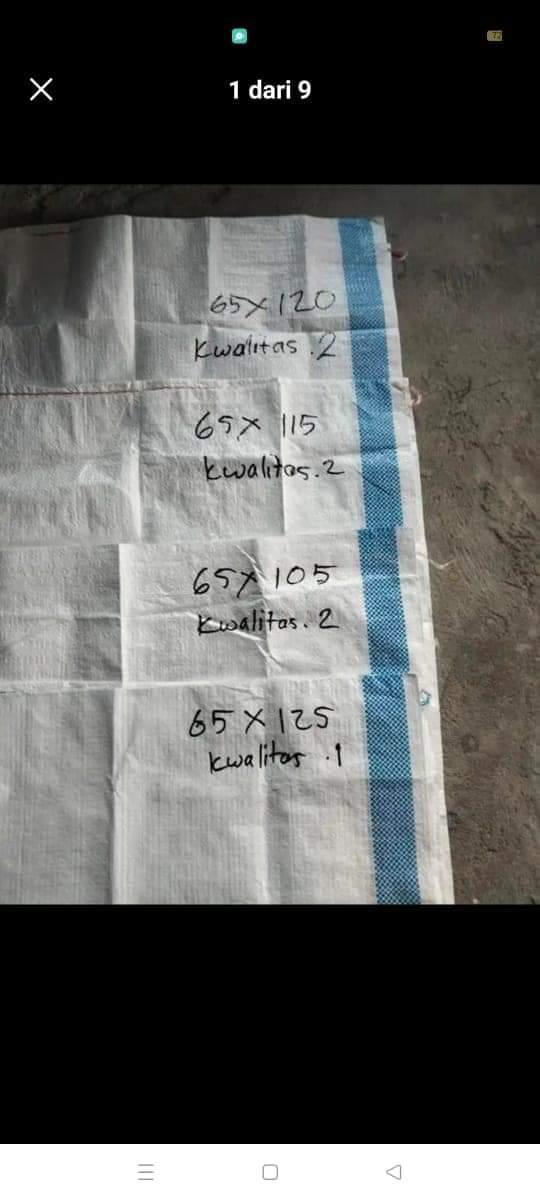 1 dari 9
65x120
Kwalitas .2
65x 115
kwalitas.2
65x 105
Kwalitas. 2
65 X 125
kwalitas .1